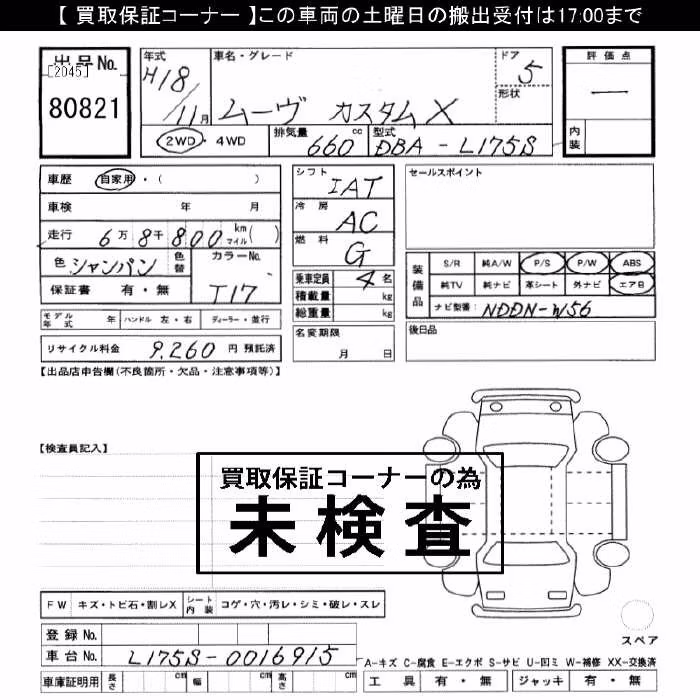 【 買取保証コーナー 】この車両の土曜日の搬出受付は17:00まで
出品No.
[2045]
80821
年式
H18/11月
車名・グレード
ムーヴ カスタムX
ドア
5
形状
評価点
—
内装
2WD・4WD
排気量
660cc
型式
DBA-L175S
車歴 自家用・( )
車検 年 月
走行 6万8千800 km マイル( )
色 シャンパン 色替 カラーNo.
T17
保証書 有・無
シフト
IAT
冷房
AC
燃料
G
乗車定員 4名
積載量 kg
総重量 kg
セールスポイント
装備品
S/R 純A/W P/S P/W ABS
純TV 純ナビ 革シート 外ナビ エアB
ナビ型番: NDDN-W56
モデル年式 年 ハンドル 左・右 ディーラー・並行
リサイクル料金 9,260 円 預託済
名変期限
月 日
後日品
【出品店申告欄(不良箇所・欠品・注意事項等)】
【検査員記入】
買取保証コーナーの為
未検査
FW キズ・トビ石・割レX シート内装 コゲ・穴・汚レ・シミ・破レ・スレ
スペア
登録No.
車台No. L175S-0016915
車庫証明用 長さ cm 幅 cm 高さ cm
A-キズ C-腐食 E-エクボ S-サビ U-凹ミ W-補修 XX-交換済
工具 有・無 ジャッキ 有・無